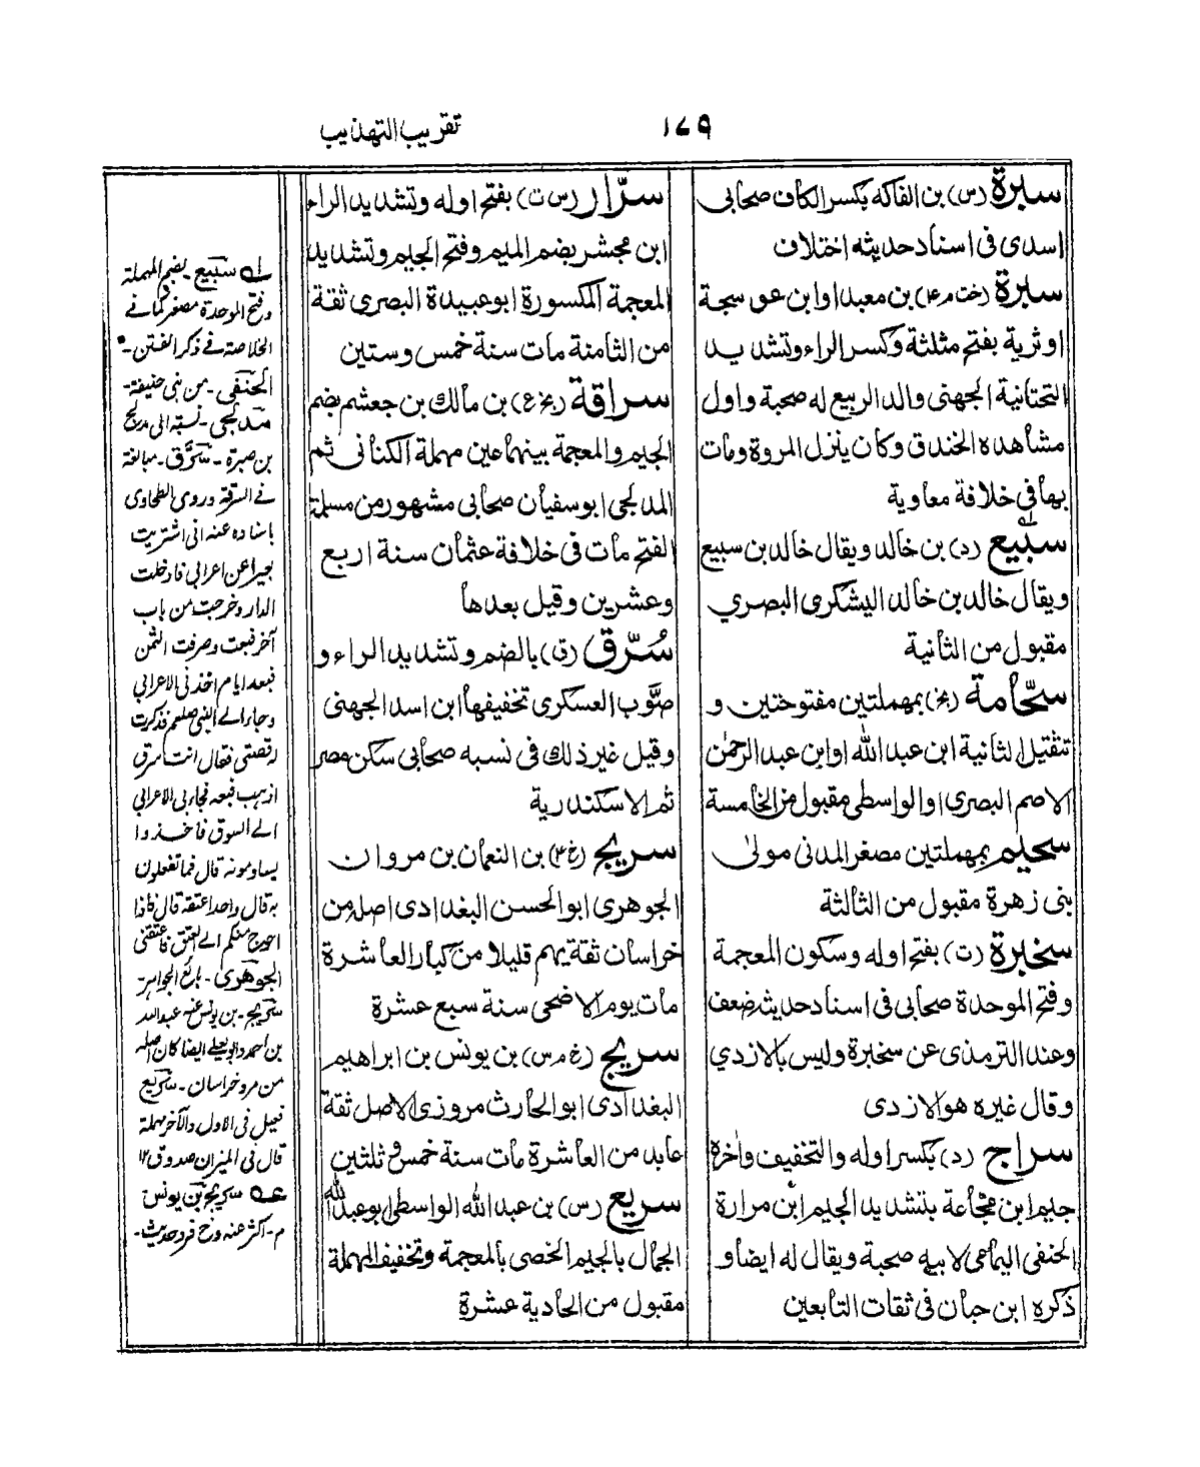 ١٧٩
تقريب التهذيب
سبرة (س) بن الفاكه بكسر الكاف صحابى
اسدى فى اسناد حديثه اختلاف
سبرة (خت م ٤) بن معبد او ابن عوسجة
او ثرية بفتح مثلثة وكسر الراء وتشديد
التحتانية الجهنى والد الربيع له صحبة واول
مشاهده الخندق وكان ينزل المروة ومات
بها فى خلافة معاوية
سبيع (د) بن خالد ويقال خالد بن سبيع
ويقال خالد بن خالد اليشكرى البصري
مقبول من الثانية
سحّامة (بخ) بمهملتين مفتوحتين و
تثقيل الثانية ابن عبد الله او ابن عبد الرحمن
الاصم البصري او الواسطى مقبول من الخامسة
سحيم بمهملتين مصغر المدنى مولى
بنى زهرة مقبول من الثالثة
سخبرة (ت) بفتح اوله وسكون المعجمة
وفتح الموحدة صحابى فى اسناد حديثه ضعف
وعند الترمذى عن سخبرة وليس بالازدي
وقال غيره هو الازدى
سراج (د) بكسر اوله والتخفيف واخرة
جيم ابن مجّاعة بتشديد الجيم ابن مرارة
الحنفى اليمامى لابيه صحبة ويقال له ايضا و
ذكره ابن حبان فى ثقات التابعين
سرّار (س ت) بفتح اوله وتشديد الراء
ابن مجشر بضم الميم وفتح الجيم وتشديد
المعجمة المكسورة ابو عبيدة البصرى ثقة
من الثامنة مات سنة خمس وستين
سراقة (بخ ع) بن مالك بن جعشم بضم
الجيم والمعجمة بينهما عين مهملة الكنانى ثم
المدلجى ابو سفيان صحابى مشهور من مسلمة
الفتح مات فى خلافة عثمان سنة اربع
وعشرين وقيل بعدها
سُرّق (ق) بالضم وتشديد الراء و
صوّب العسكرى تخفيفها ابن اسد الجهنى
وقيل غير ذلك فى نسبه صحابى سكن مصر
ثم الاسكندرية
سريج (خ ٤) بن النعمان بن مروان
الجوهرى ابو الحسن البغدادى اصله من
خراسان ثقة يهم قليلا من كبار العاشرة
مات يوم الاضحى سنة سبع عشرة
سريج (خ م س) بن يونس بن ابراهيم
البغدادى ابو الحارث مروزى الاصل ثقة
عابد من العاشرة مات سنة خمس و ثلثين
سريع (س) بن عبد الله الواسطى ابو عبد الله
الجمال بالجيم الخصى بالمعجمة وتخفيف المهملة
مقبول من الحادية عشرة
له سبيع - بضم المهملة
وفتح الموحدة مصغر كما فے
الخلاصة فے ذكر الفتن -
الحنفى - من بنى حنيفة -
مدلجى - نسبة الى مدلج
بن مرة - سُرَّق - مبالغة
فے السرقة وروى الطحاوى
باسناده عنه انى اشتريت
بعيرا من اعرابى فادخلت
الدار وخرجت من باب
آخر فبعت وصرفت الثمن
فبعد ايام اخذنى الاعرابى
وجاء الے النبى صلعم فذكرت
له قصتى فقال انت سرق
اذهب فبعه فجاء بى الاعرابى
الے السوق فاخذوا
يساومونه قال فما تفعلون
به قال واحد اعتقه قال فاذا
احوج منكم الے العتق فاعتقنى
الجوهرى - بائع الجواهر -
سريج - بن يونس عنه عبد الله
بن احمد وابو يعلے ايضا كان اصله
من مرو خراسان - سريع
قيل فى الاول والآخر مهملة
قال فى الميزان صدوق ١٢
عه سريج بن يونس
م - اكثر عنه و خ فرد حديث -